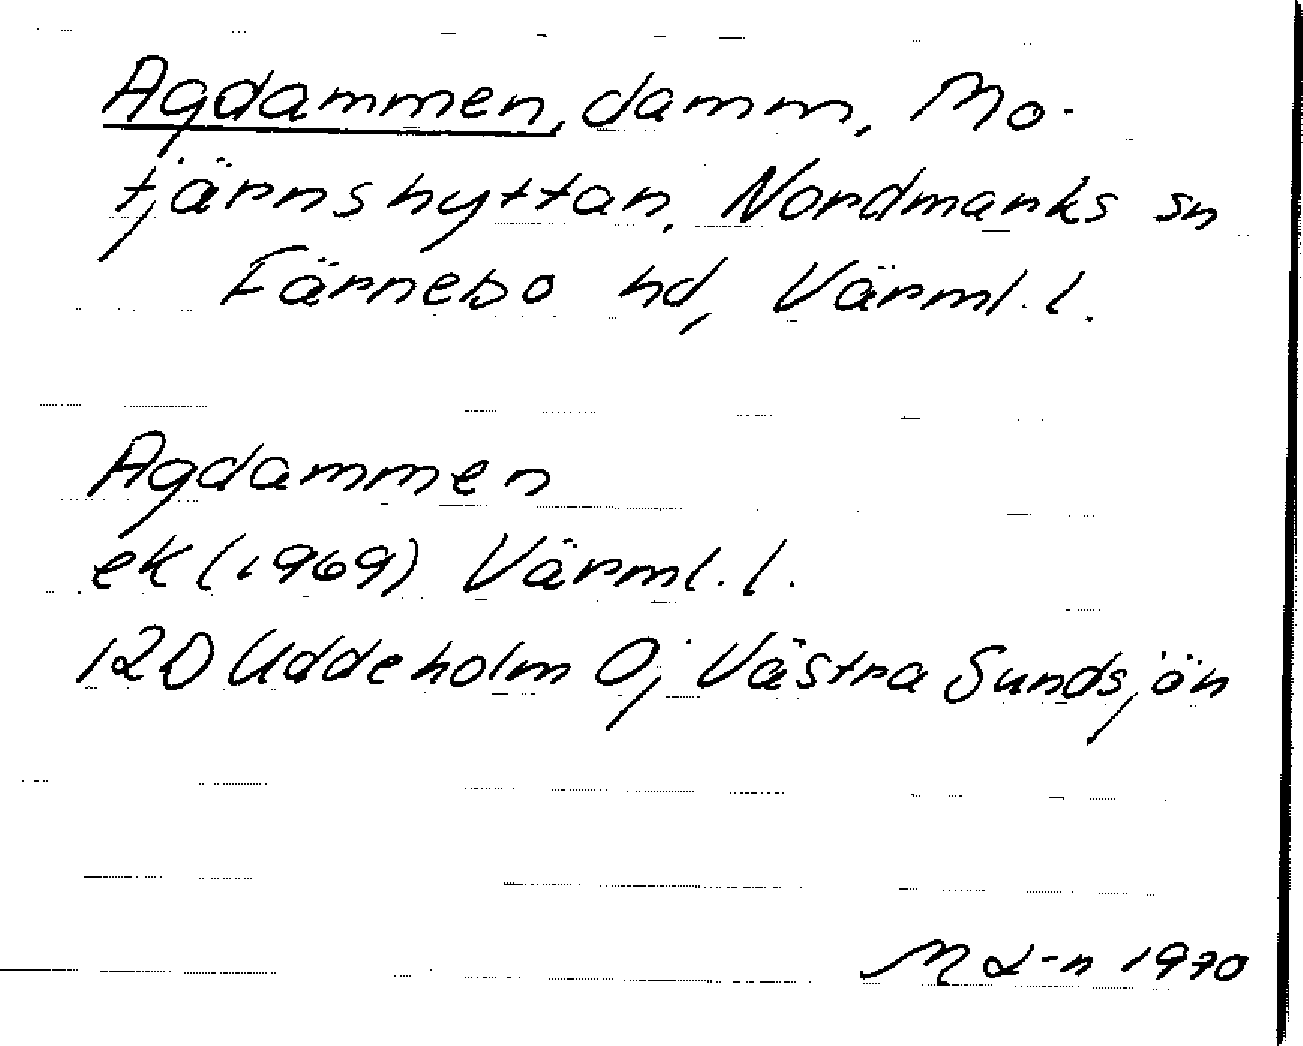 Agdammen, damm, Mo-
tjärnshyttan, Nordmarks sn
Färnebo hd, Värml. l.
Agdammen
ek (1969) Värml. l.
12D Uddeholm 0j Västra Sundsjön
M L-n 1970